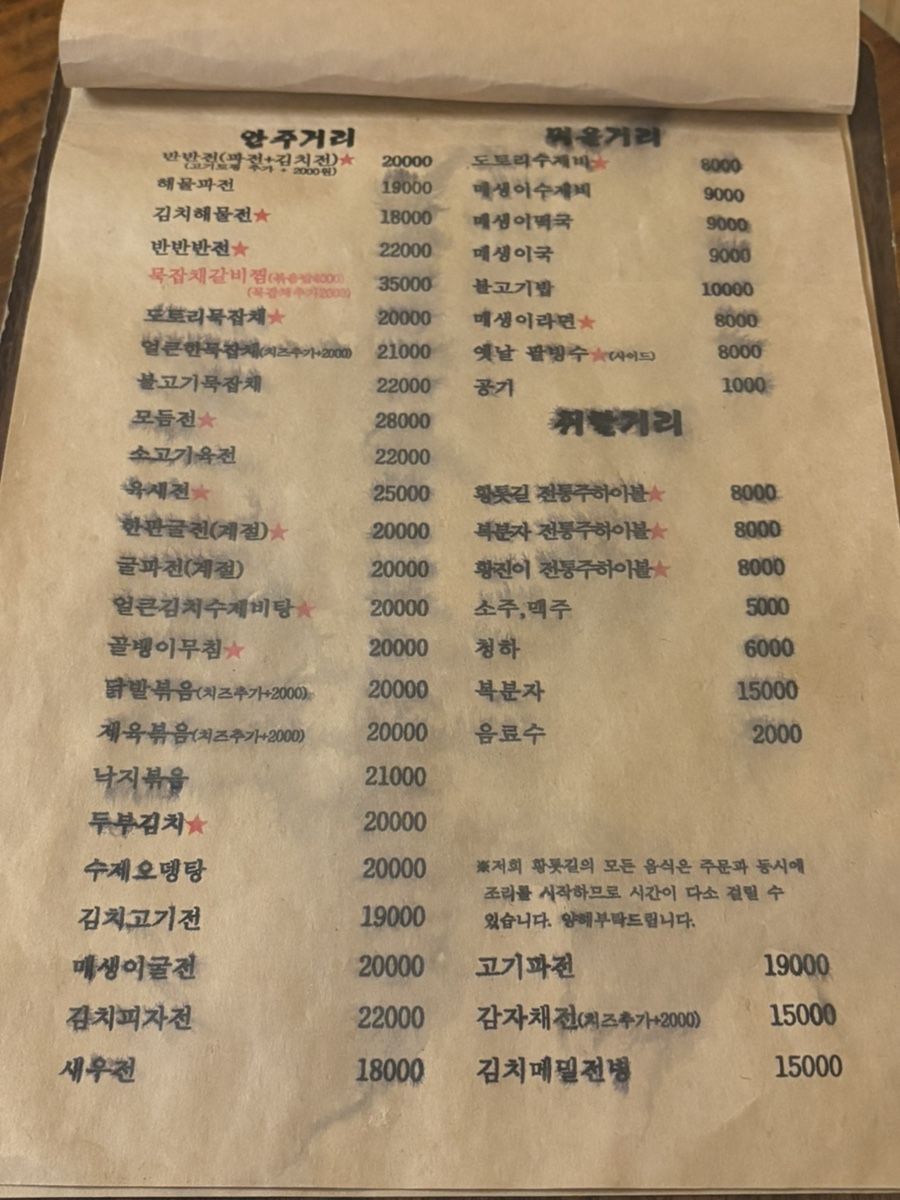 안주거리
반반전(파전+김치전)★ 20000
(고기토핑 추가 + 2000원)
해물파전 19000
김치해물전★ 18000
반반반전★ 22000
묵잡채갈비찜(볶음밥4000) 35000
(묵잡채추가2000)
도토리묵잡채★ 20000
얼큰한묵잡채(치즈추가+2000) 21000
불고기묵잡채 22000
모듬전★ 28000
소고기육전 22000
육새전★ 25000
한판굴전(계절)★ 20000
굴파전(계절) 20000
얼큰김치수제비탕★ 20000
골뱅이무침★ 20000
닭발볶음(치즈추가+2000) 20000
제육볶음(치즈추가+2000) 20000
낙지볶음 21000
두부김치★ 20000
수제오뎅탕 20000
김치고기전 19000
매생이굴전 20000
김치피자전 22000
새우전 18000
먹을거리
도토리수제비★ 8000
매생이수제비 9000
매생이떡국 9000
매생이국 9000
불고기밥 10000
매생이라면★ 8000
옛날 팥빙수★(사이드) 8000
공기 1000
취할거리
황톳길 전통주하이볼★ 8000
복분자 전통주하이볼★ 8000
황진이 전통주하이볼★ 8000
소주,맥주 5000
청하 6000
복분자 15000
음료수 2000
※저희 황톳길의 모든 음식은 주문과 동시에
조리를 시작하므로 시간이 다소 걸릴 수
있습니다. 양해부탁드립니다.
고기파전 19000
감자채전(치즈추가+2000) 15000
김치메밀전병 15000